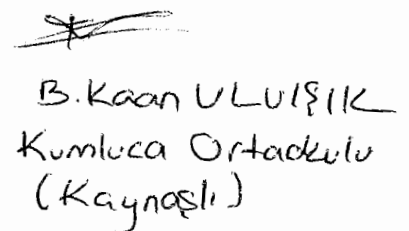 B.Kaan ULUIŞIK
Kumluca Ortaokulu
(Kaynaşlı)